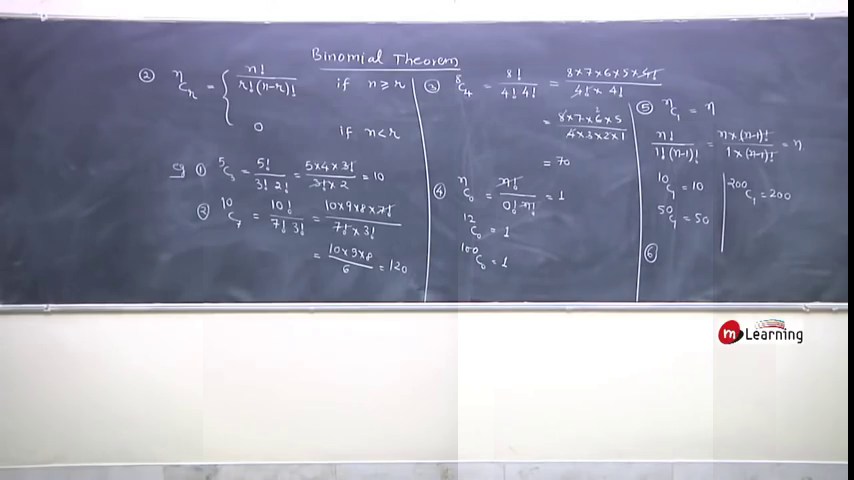 Binomial Theorem
② ⁿCᵣ = { n! / r!(n-r)! if n ≥ r
0 if n < r
eg ① ⁵C₃ = 5! / 3! 2! = 5×4×3! / 3!×2 = 10
② ¹⁰C₇ = 10! / 7! 3! = 10×9×8×7! / 7!×3!
= 10×9×8 / 6 = 120
③ ⁸C₄ = 8! / 4! 4! = 8×7×6×5×4! / 4!×4!
= 8×7×6×5 / 4×3×2×1
= 70
④ ⁿC₀ = n! / 0! n! = 1
¹²C₀ = 1
¹⁰⁰C₀ = 1
⑤ ⁿC₁ = n
n! / 1!(n-1)! = n×(n-1)! / 1×(n-1)! = n
¹⁰C₁ = 10
⁵⁰C₁ = 50
²⁰⁰C₁ = 200
⑥
m Learning